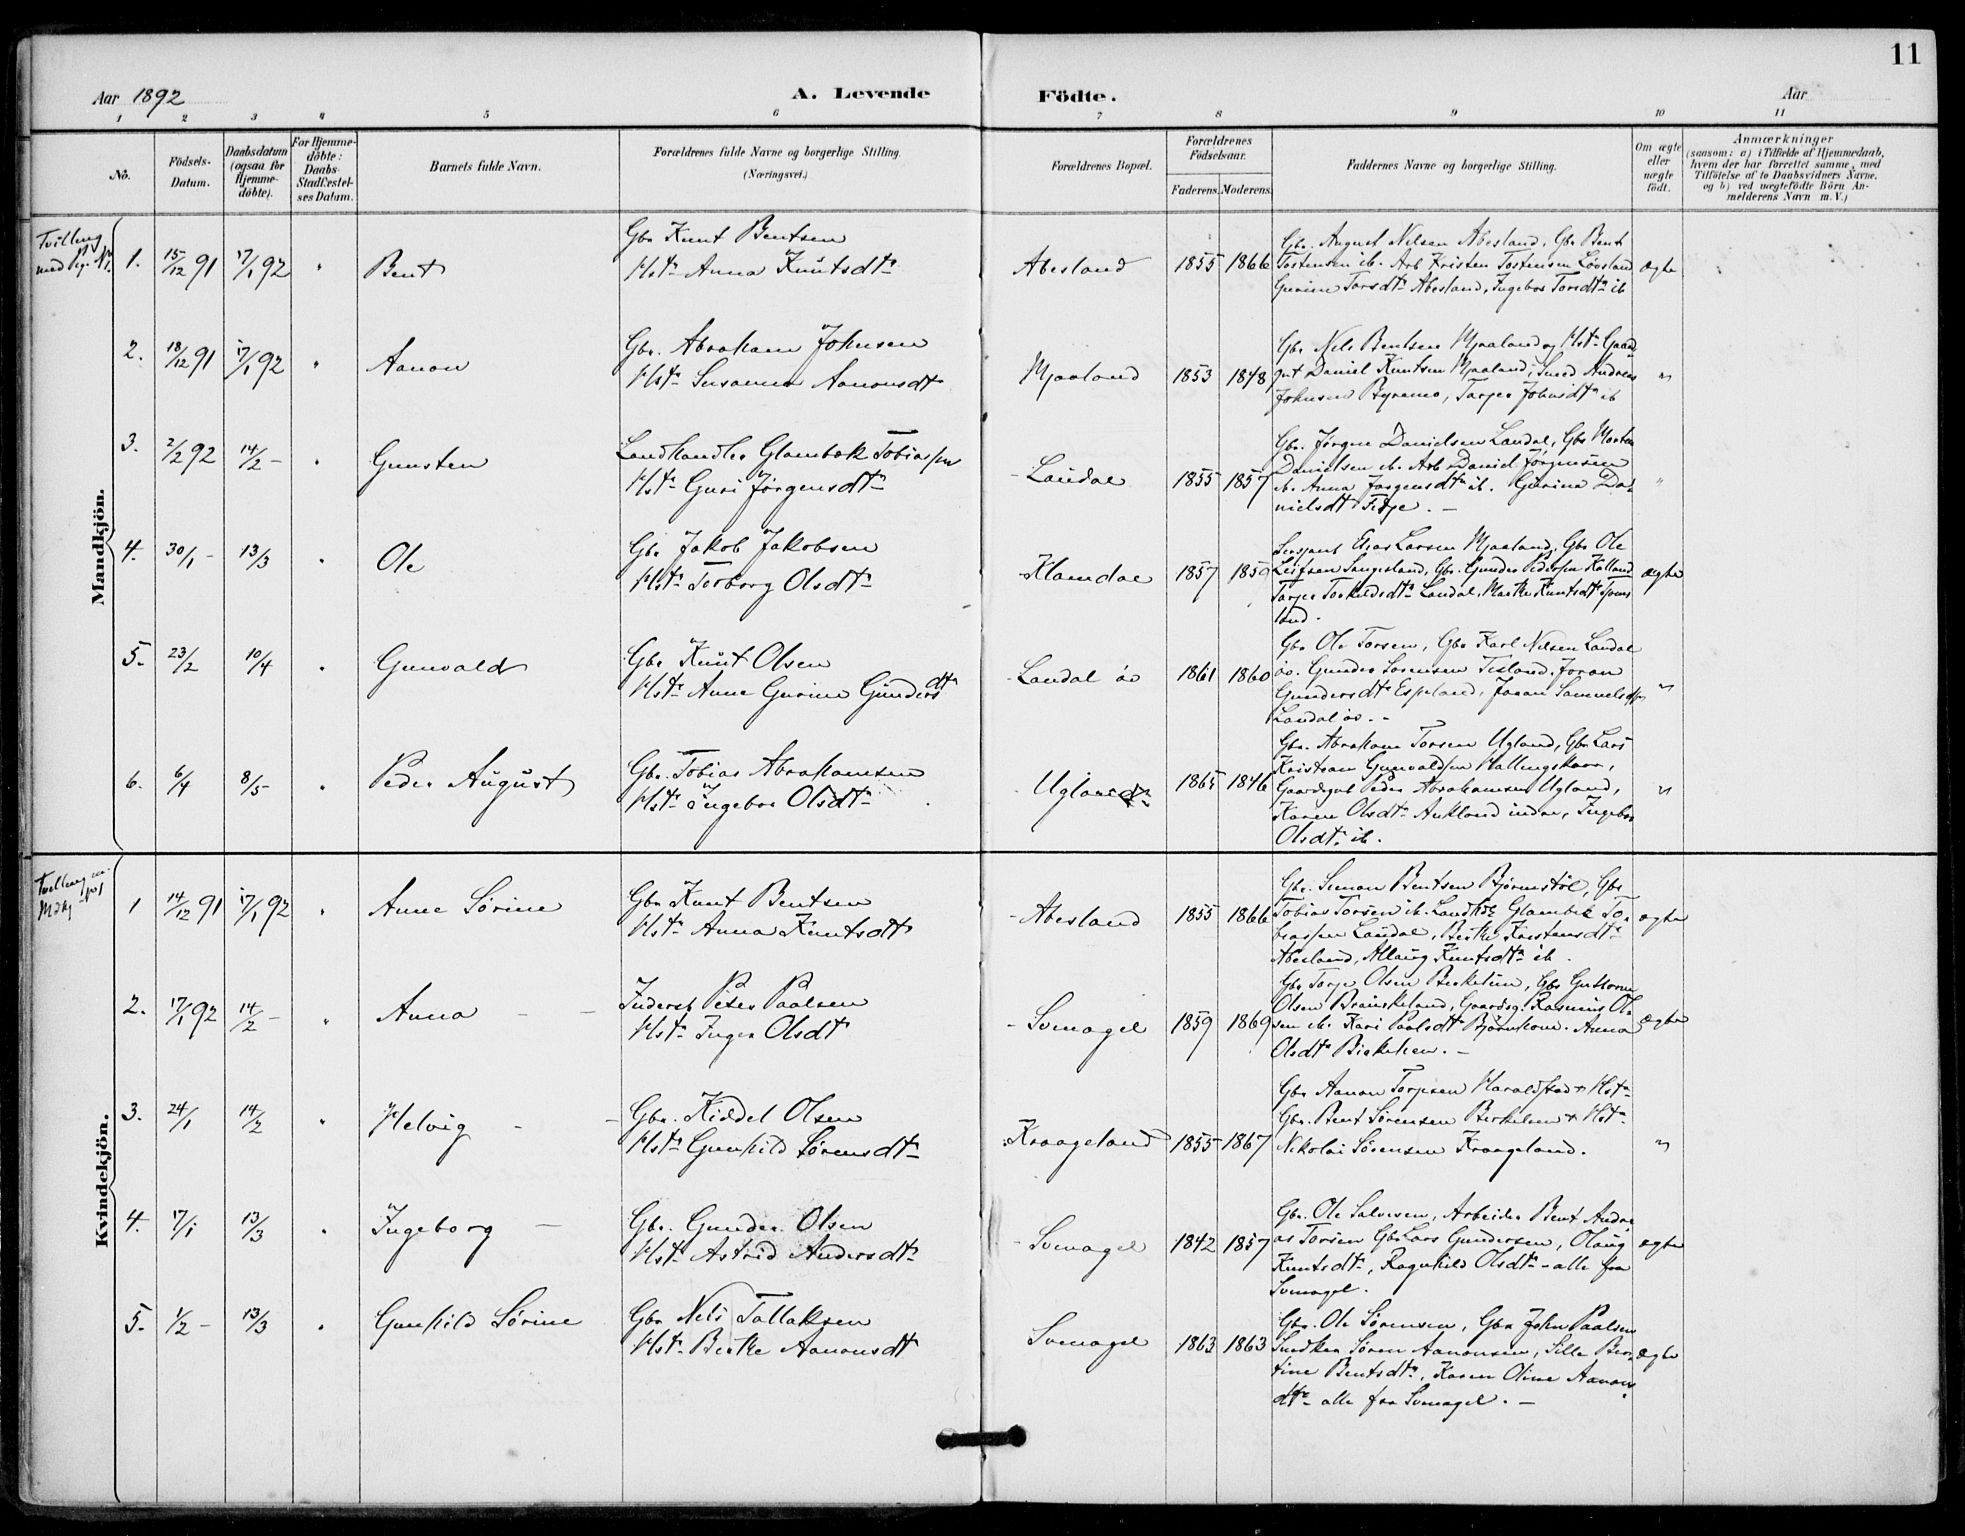 11
Aar 1892
A. Levende
Födte.
Aar
1 2 3 4 5 6 7 8 9 10 11
No.
Födsels-
Datum.
Daabsdatum
(ogsaa for
Hjemme-
döbte).
For Hjemme-
döbte:
Daabs-
Stadfæstel-
ses Datum.
Barnets fulde Navn.
Forældrenes fulde Navne og borgerlige Stilling.
(Næringsvei.)
Forældrenes Bopæl.
Forældrenes
Födselsaar.
Faderens. Moderens.
Faddernes Navne og borgerlige Stilling.
Om ægte
eller
uægte
födt.
Anmærkninger
(saasom: a) i Tilfælde af Hjemmedaab,
hvem der har forrettet samme, med
Tilföielse af to Daabsvidners Navne,
og b) ved uægtefödte Börn An-
melderens Navn m. V.)
Mandkjön.
Tvilling
med Pig. No 1.
1. 15/12 91 17/1 92 " Bent
Gbr Knut Bentsen
Hst. Anna Knutsdtr
Abesland 1855 1866
Gbr. August Nilsen Abesland, Gbr Bent
Tostensen ib. Arb Kristen Tostensen Løvsland
Gurine Torsdtr Abesland, Ingebor Torsdtr ib
ægte
2. 18/12 91 17/1 92 " Aanon
Gbr. Abraham Johnsen
Hst. Susanna Aanonsdt
Mjaaland 1853 1848
Gbr Nils Bentsen Mjaaland og Hst. Gaard
gut Daniel Knutsen Mjaaland, Smed Andreas
Johnsen Byremo, Tarjer Johnsdtr ib
"
3. 2/2 92 14/2 - " Gunsten
Landhandler Glambek Tobiassen
Hst. Guri Jørgensdtr
Laudal 1855 1857
Gbr. Jørgen Danielsen Laudal, Gbr Morten
Danielsen ib. Arb Daniel Jørgensen
ib. Anna Jørgensdtr ib. Gurina Da-
nielsdt Fidje. -
"
4. 30/1 - 13/3 " Ole
Gbr Jakob Jakobsen
Hst. Torborg Olsdtr
Klamdal 1857 1859
Sersjant Elias Larsen Mjaaland, Gbr Ole
Leifsen Sangesland, Gbr. Gunder Pedersen Kalland
Tarjer Torkildsdtr Laudal, Marthe Knutsdtr
land.
ægte
5. 23/2 10/4 " Gunvald
Gbr Knut Olsen
Hst. Anne Gurine Gundersdtr
Laudal øv 1861 1860
Gbr Ole Torsen, Gbr Karl Nilsen Laudal
øv. Gunder Sørensen Tisland, Joran
Gundersdtr Espeland, Joran Samuelsdtr
Laudal øv. -
"
6. 6/4 8/5 - " Peder August
Gbr. Tobias Abrahamsen
Hst. Ingebor Olsdtr
Ugland 1865 1846
Gbr. Abraham Torsen Ugland, Gbr Lars
Kristian Gunvaldsen Hallingskaar,
Gaardgut Peder Abrahamsen Ugland,
Karen Olsdtr Aukland indre, Ingebor
Olsdtr ib.
"
Kvindekjön.
Tvilling m.
Mdkj No 1
1 14/12 91 17/1 92 " Anne Sørine
Gbr Knut Bentsen
Hst. Anna Knutsdtr
Abesland 1855 1866
Gbr. Simon Bentsen Bjørnstøl, Gbr
Tobias Torsen ib. Landhdl Glambek To-
biassen Laudal, Berthe Knstensdtr
Abesland, Allaug Knutsdtr ib.
ægte
2. 17/1 92 14/2 - " Anna
Inderst Peter Paalsen
Hst. Inger Olsdt
Svenagel 1859 1869
Gbr Torje Olsen Birkelien, Gbr Guttorm
Olsen Brauskeland, Gaardsg. Rasmus Ol-
sen ib. Kari Paalsdtr Bjørnkom. Anna
Olsdtr Birkelien. -
ægte
3. 24/1 14/2 " Helvig
Gbr. Kiddel Olsen
Hst. Gunhild Sørensdtr
Kraageland 1855 1867
Gbr Aanon Torjesen Haraldstad + Hst.
Gbr. Bent Sørensen Birkelien + Hst.
Nikolai Sørensen Kraageland.
"
4. 17/1 13/3 " Ingeborg
Gbr. Gunder Olsen
Hst. Astrid Andersdtr
Svenagel 1842 1857
Gbr. Ole Salvesen, Arbeider Bent Andre
as Torsen Gbr Lars Gundersen, Olaug
Knutsdtr, Ragnhild Olsdtr - alle fra
Svenagel.
ægte
5. 1/2 - 13/3 " Gunhild Sørine
Gbr Nils Tallaksen
Hst. Berthe Aanonsdt
Svenagel 1863 1863
Gbr. Ole Sørensen, Gbr John Paalsen
Snedker Søren Aanonsen, Sille Ber-
tine Bentsdtr, Karen Oline Aanons-
dtr alle fra Svenagel. -
ægte